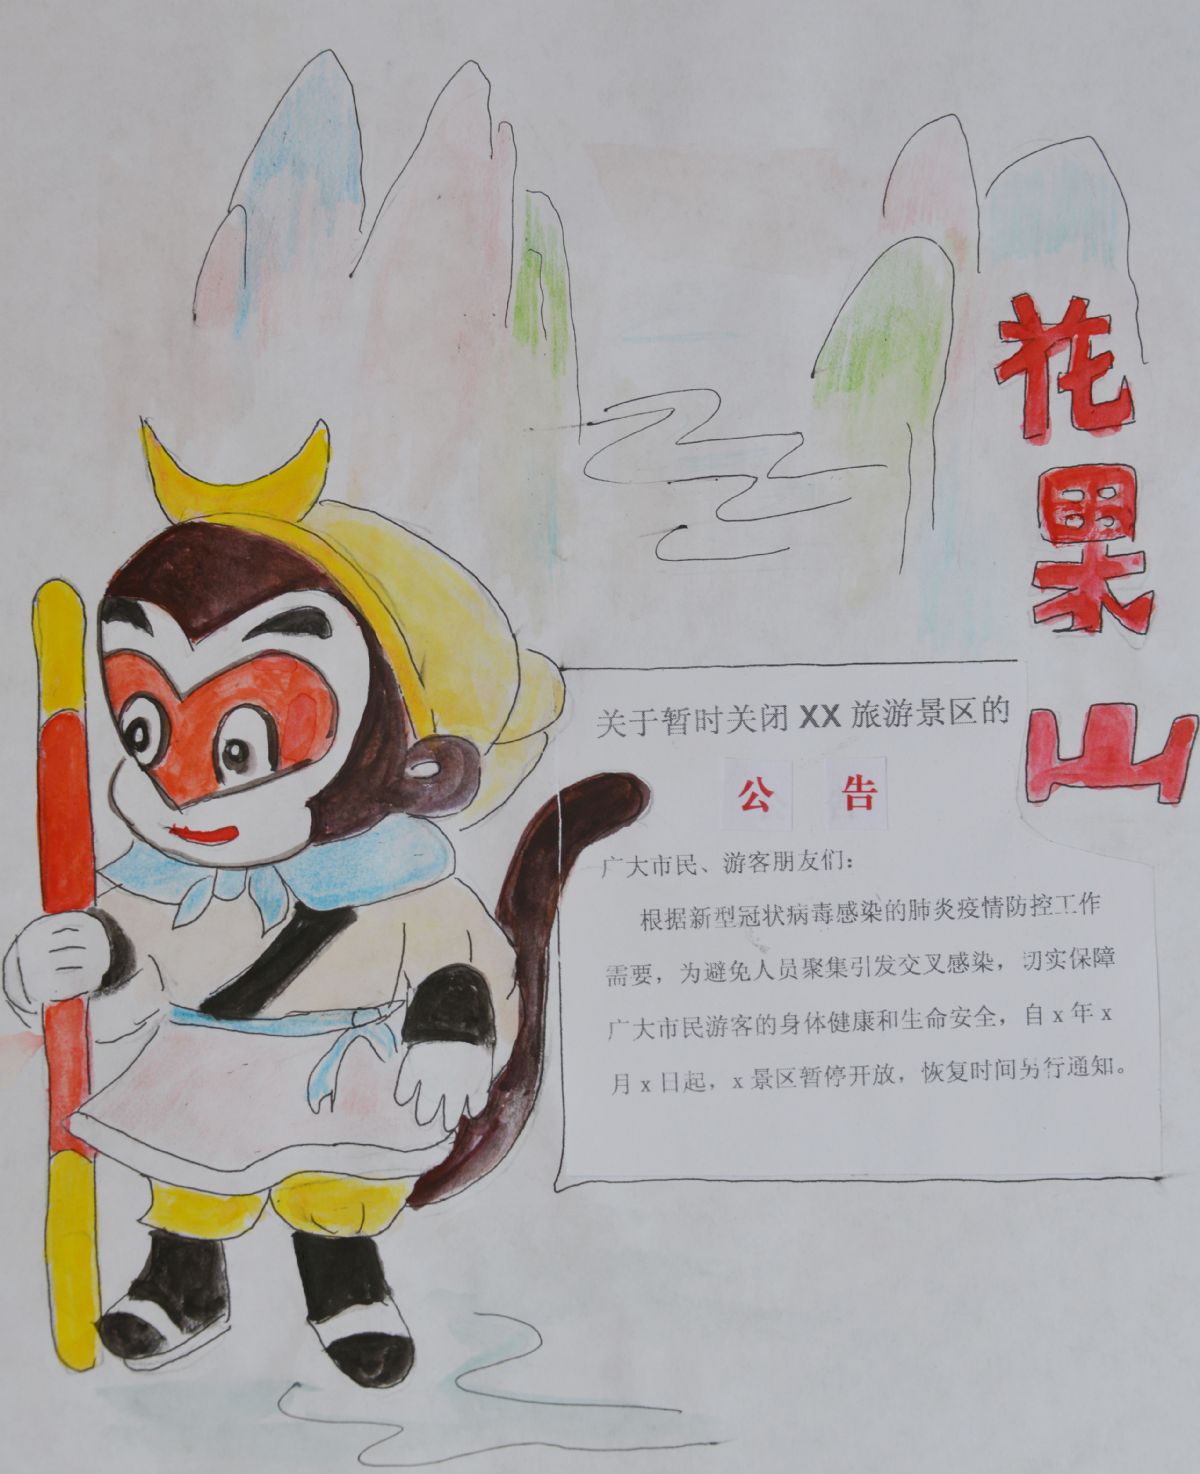 花果山
关于暂时关闭 XX 旅游景区的
公 告
广大市民、游客朋友们：
根据新型冠状病毒感染的肺炎疫情防控工作
需要，为避免人员聚集引发交叉感染，切实保障
广大市民游客的身体健康和生命安全，自 x 年 x
月 x 日起，x 景区暂停开放，恢复时间另行通知。